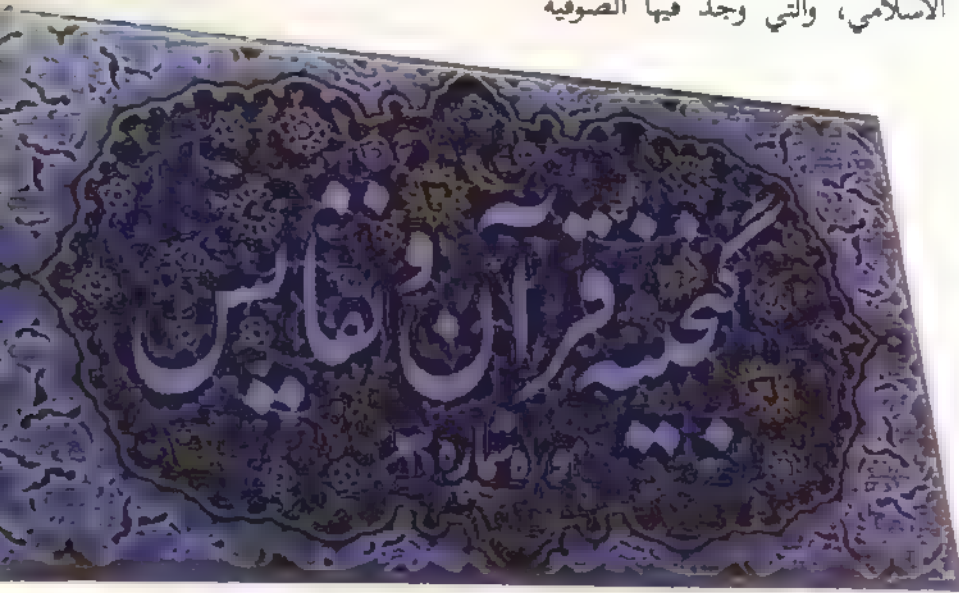 الاسلامي، والتي وجد فيها الصوفية
گنجینه قرآن و نفایس